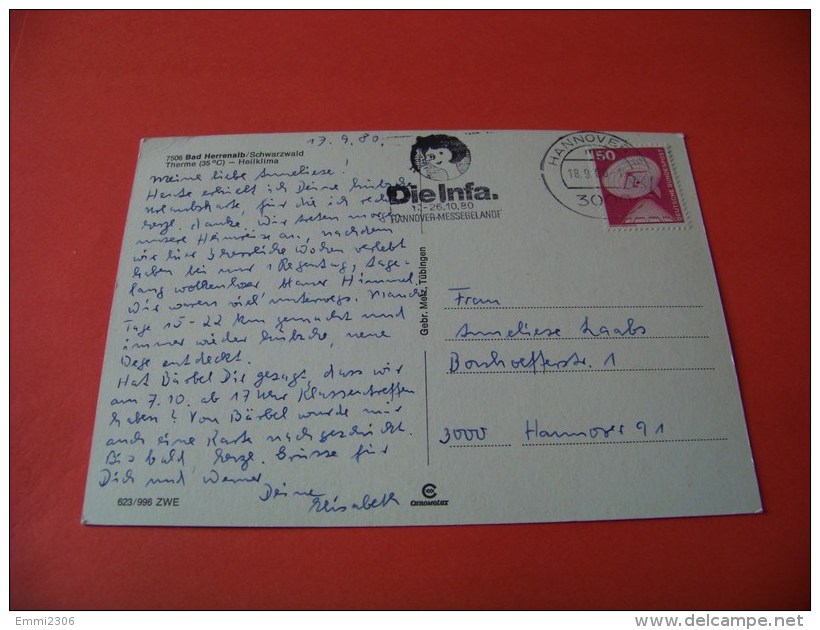 17.9.80.
7506 Bad Herrenalb/Schwarzwald
Therme (35°C) – Heilklima
Meine liebe Anneliese!
Heute erhielt ich Deine hübsche
Urlaubskarte, für die ich recht
herzl. danke. Wir treten morgen
unsere Heimreise an, nachdem
wir hier 3 herrliche Wochen verlebt
haben bei nur 1 Regentag, tage-
lang wolkenloser blauer Himmel.
Wir waren viel unterwegs. Manche
Tage 15-22 km gemacht und
immer wieder hübsche, neue
Wege entdeckt.
Hat Bärbel Dir gesagt, dass wir
am 7.10. ab 17 Uhr Klassentreffen
haben? Von Bärbel wurde mir
auch eine Karte nachgeschickt.
Bis bald, herzl. Grüsse für
Dich und Werner
Deine
Elisabeth
623/996 ZWE
Gebr. Metz, Tübingen
Die Infa.
-26.10.80
HANNOVER-MESSEGELÄNDE
HANNOVER
18.9.
50
DEUTSCHE BUNDESPOST
Frau
Anneliese Laabs
1
3000 Hannover 91
Emmi2306
delcampe.net